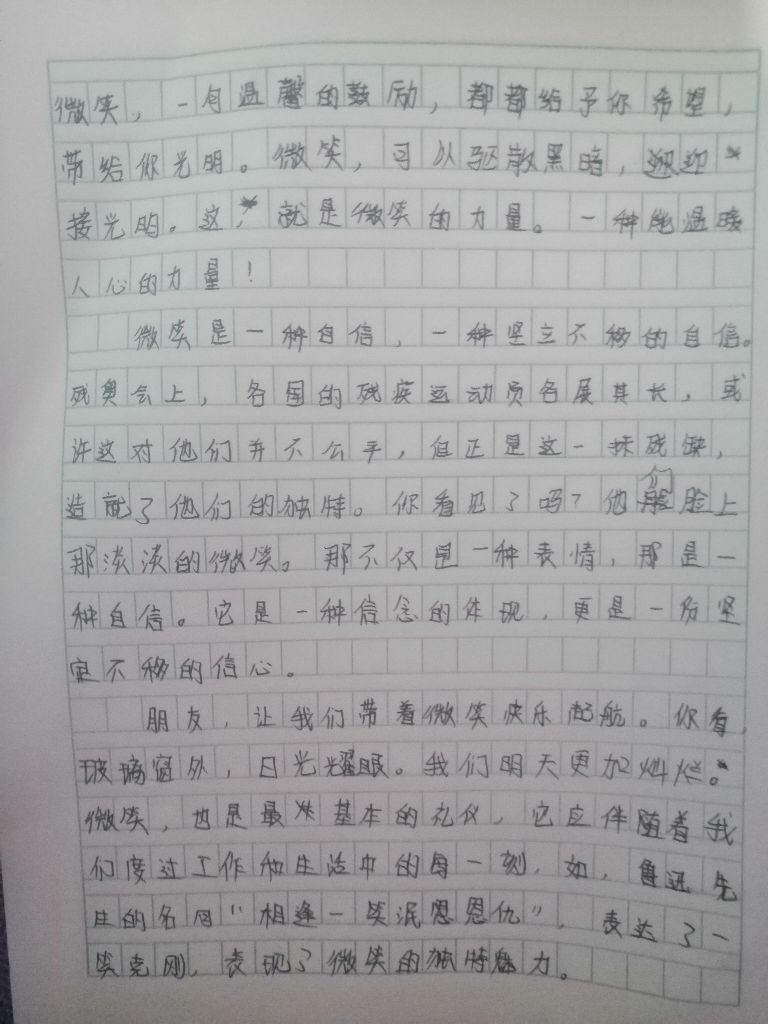 微笑，一句温馨的鼓励，都都给予你希望，
带给你光明。微笑，可以驱散黑暗，迎
接光明。这，就是微笑的力量。一种能温暖
人心的力量！
微笑是一种自信，一种坚立不移的自信。
残奥会上，各国的残疾运动员各展其长，或
许这对他们并不公平，但正是这一抹残缺，
造就了他们的独特。你看见了吗？他们脸上
那淡淡的微笑。那不仅是一种表情，那是一
种自信。它是一种信念的体现，更是一份坚
定不移的信心。
朋友，让我们带着微笑快乐起航。你看，
玻璃窗外，日光耀眼。我们明天更加灿烂。
微笑，也是最基本的礼仪，它应伴随着我
们度过工作和生活中的每一刻，如，鲁迅先
生的名句“相逢一笑泯恩恩仇”，表达了一
笑克刚，表现了微笑的独特魅力。